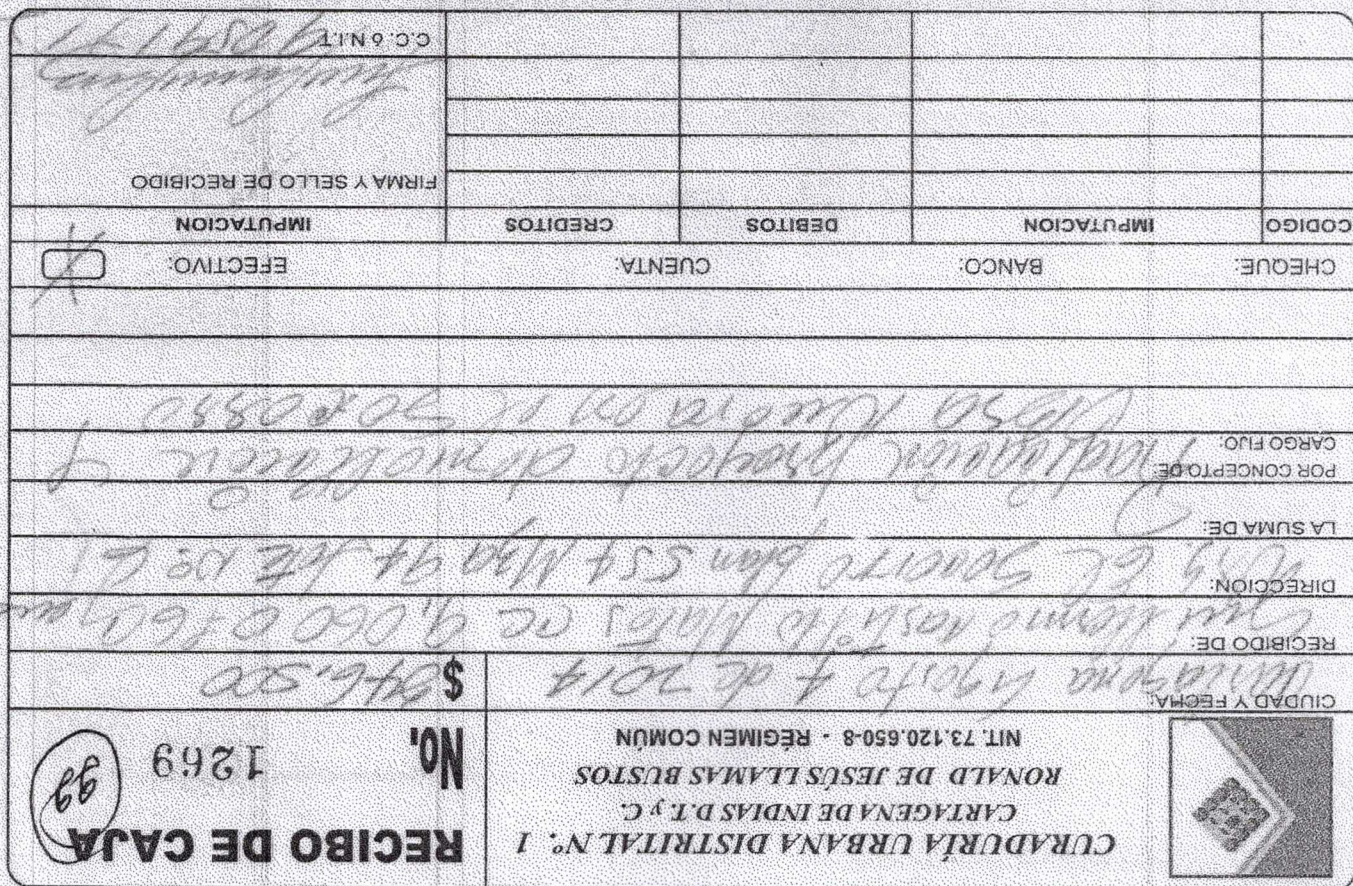 CURADURÍA URBANA DISTRITAL N.º 1
CARTAGENA DE INDIAS D.T. y C.
RONALD DE JESÚS LLAMAS BUSTOS
NIT. 73.120.650-8 - RÉGIMEN COMÚN
RECIBO DE CAJA
No. 1269
99
CIUDAD Y FECHA: Cartagena Agosto 4 de 2014 $ 246.500
RECIBIDO DE: Guillermo Castillo Matos cc 9,060
DIRECCION: El Socorro plan 554 Mza 94 Lote Nº 6
LA SUMA DE:
POR CONCEPTO DE: Radicación proyecto demolición y
CARGO FIJO: Obra Nueva
CHEQUE: BANCO: CUENTA: EFECTIVO: X
CODIGO IMPUTACION DEBITOS CREDITOS IMPUTACION
FIRMA Y SELLO DE RECIBIDO
C.C. ó N.I.T.